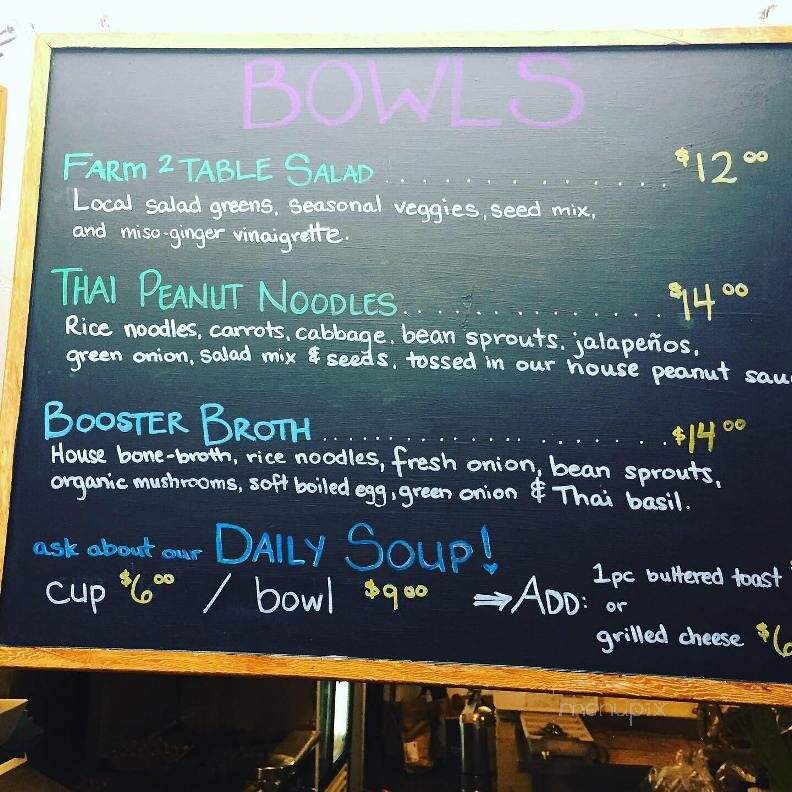 BOWLS
FARM 2 TABLE SALAD . . . . . . . . . . . . . . $12.00
Local salad greens, seasonal veggies, seed mix,
and miso-ginger vinaigrette.
THAI PEANUT NOODLES . . . . . . . . . . . . . . $14.00
Rice noodles, carrots, cabbage, bean sprouts, jalapeños,
green onion, salad mix & seeds, tossed in our house peanut
BOOSTER BROTH . . . . . . . . . . . . . . . . . $14.00
House bone-broth, rice noodles, fresh onion, bean sprouts,
organic mushrooms, soft boiled egg, green onion & Thai basil.
ask about our DAILY SOUP!
cup $6.00 / bowl $9.00 ⇒ ADD: 1pc buttered toast
or
grilled cheese $6
menupix